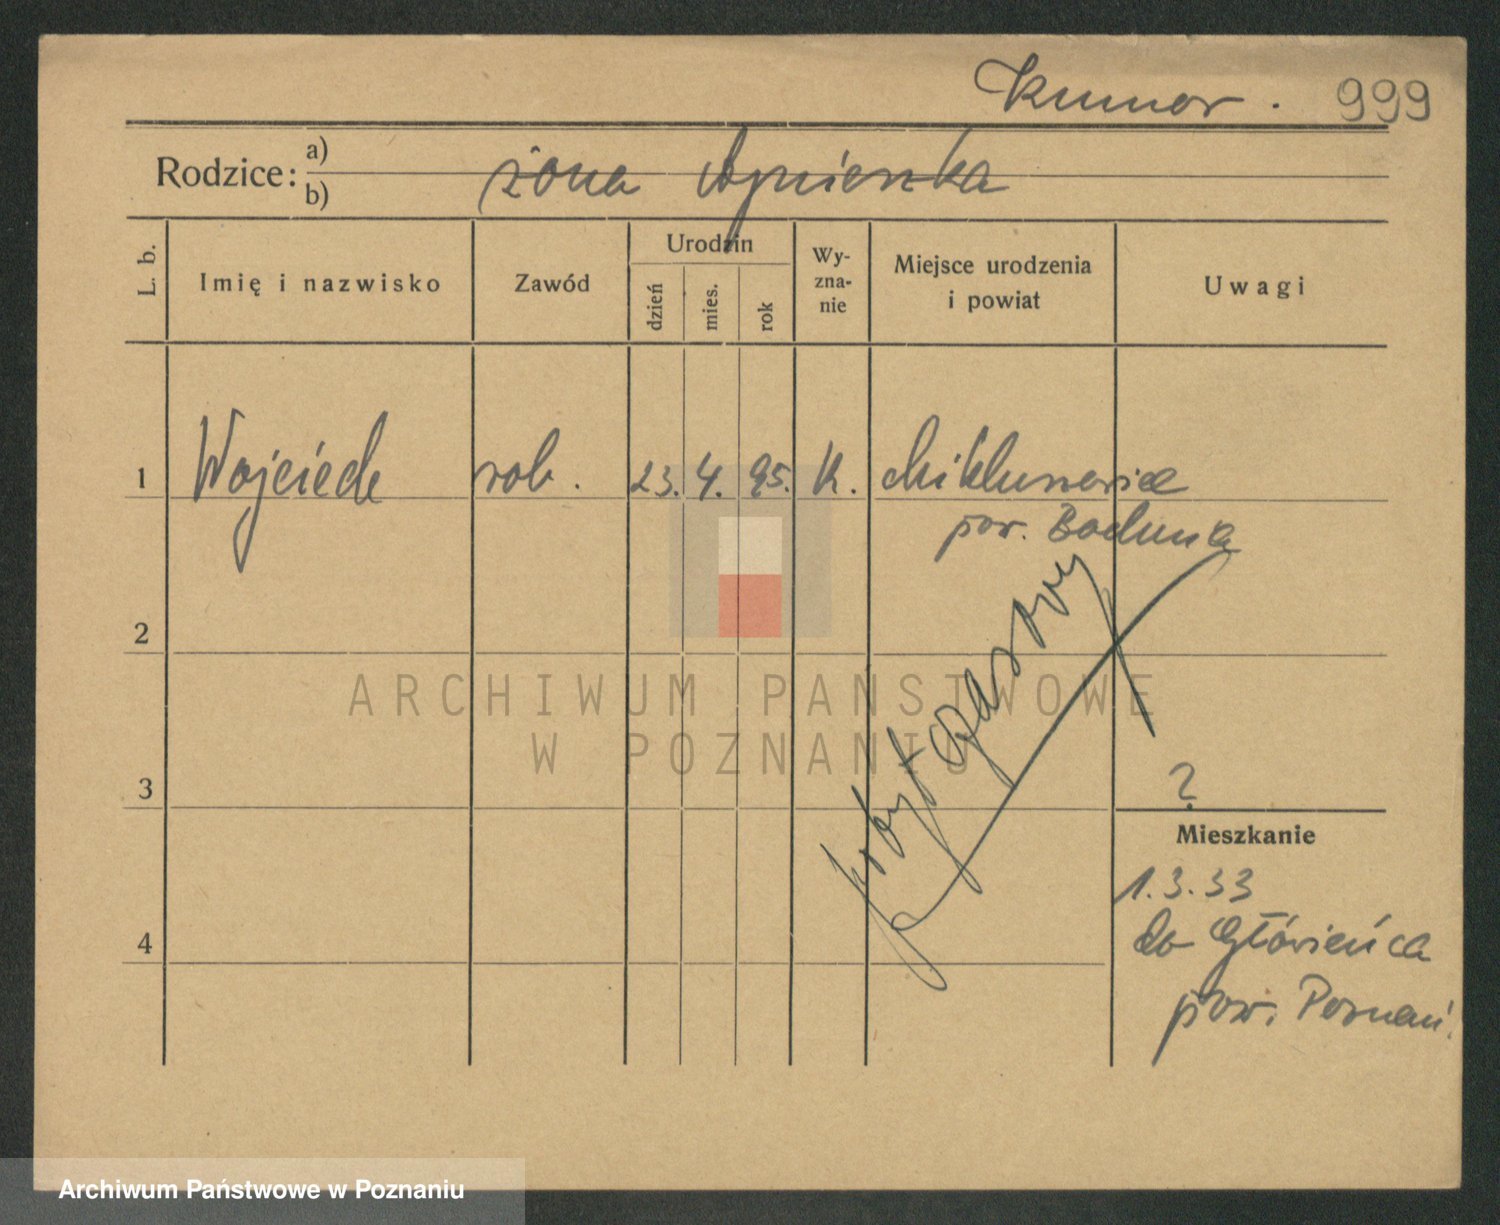 Kumor . 999
Rodzice: a)
b)
żona Agnieszka
L. b.
Imię i nazwisko
Zawód
Urodzin
dzień
mies.
rok
Wy-
zna-
nie
Miejsce urodzenia
i powiat
Uwagi
1 Wojciech rob. 23. 4. 95. K.
pow. Bochnia
2
pobyt czasowy
3
?
Mieszkanie
1.3.33
4
do Głowieńca
pow. Poznań.
ARCHIWUM PAŃSTWOWE
W POZNANIU
Archiwum Państwowe w Poznaniu